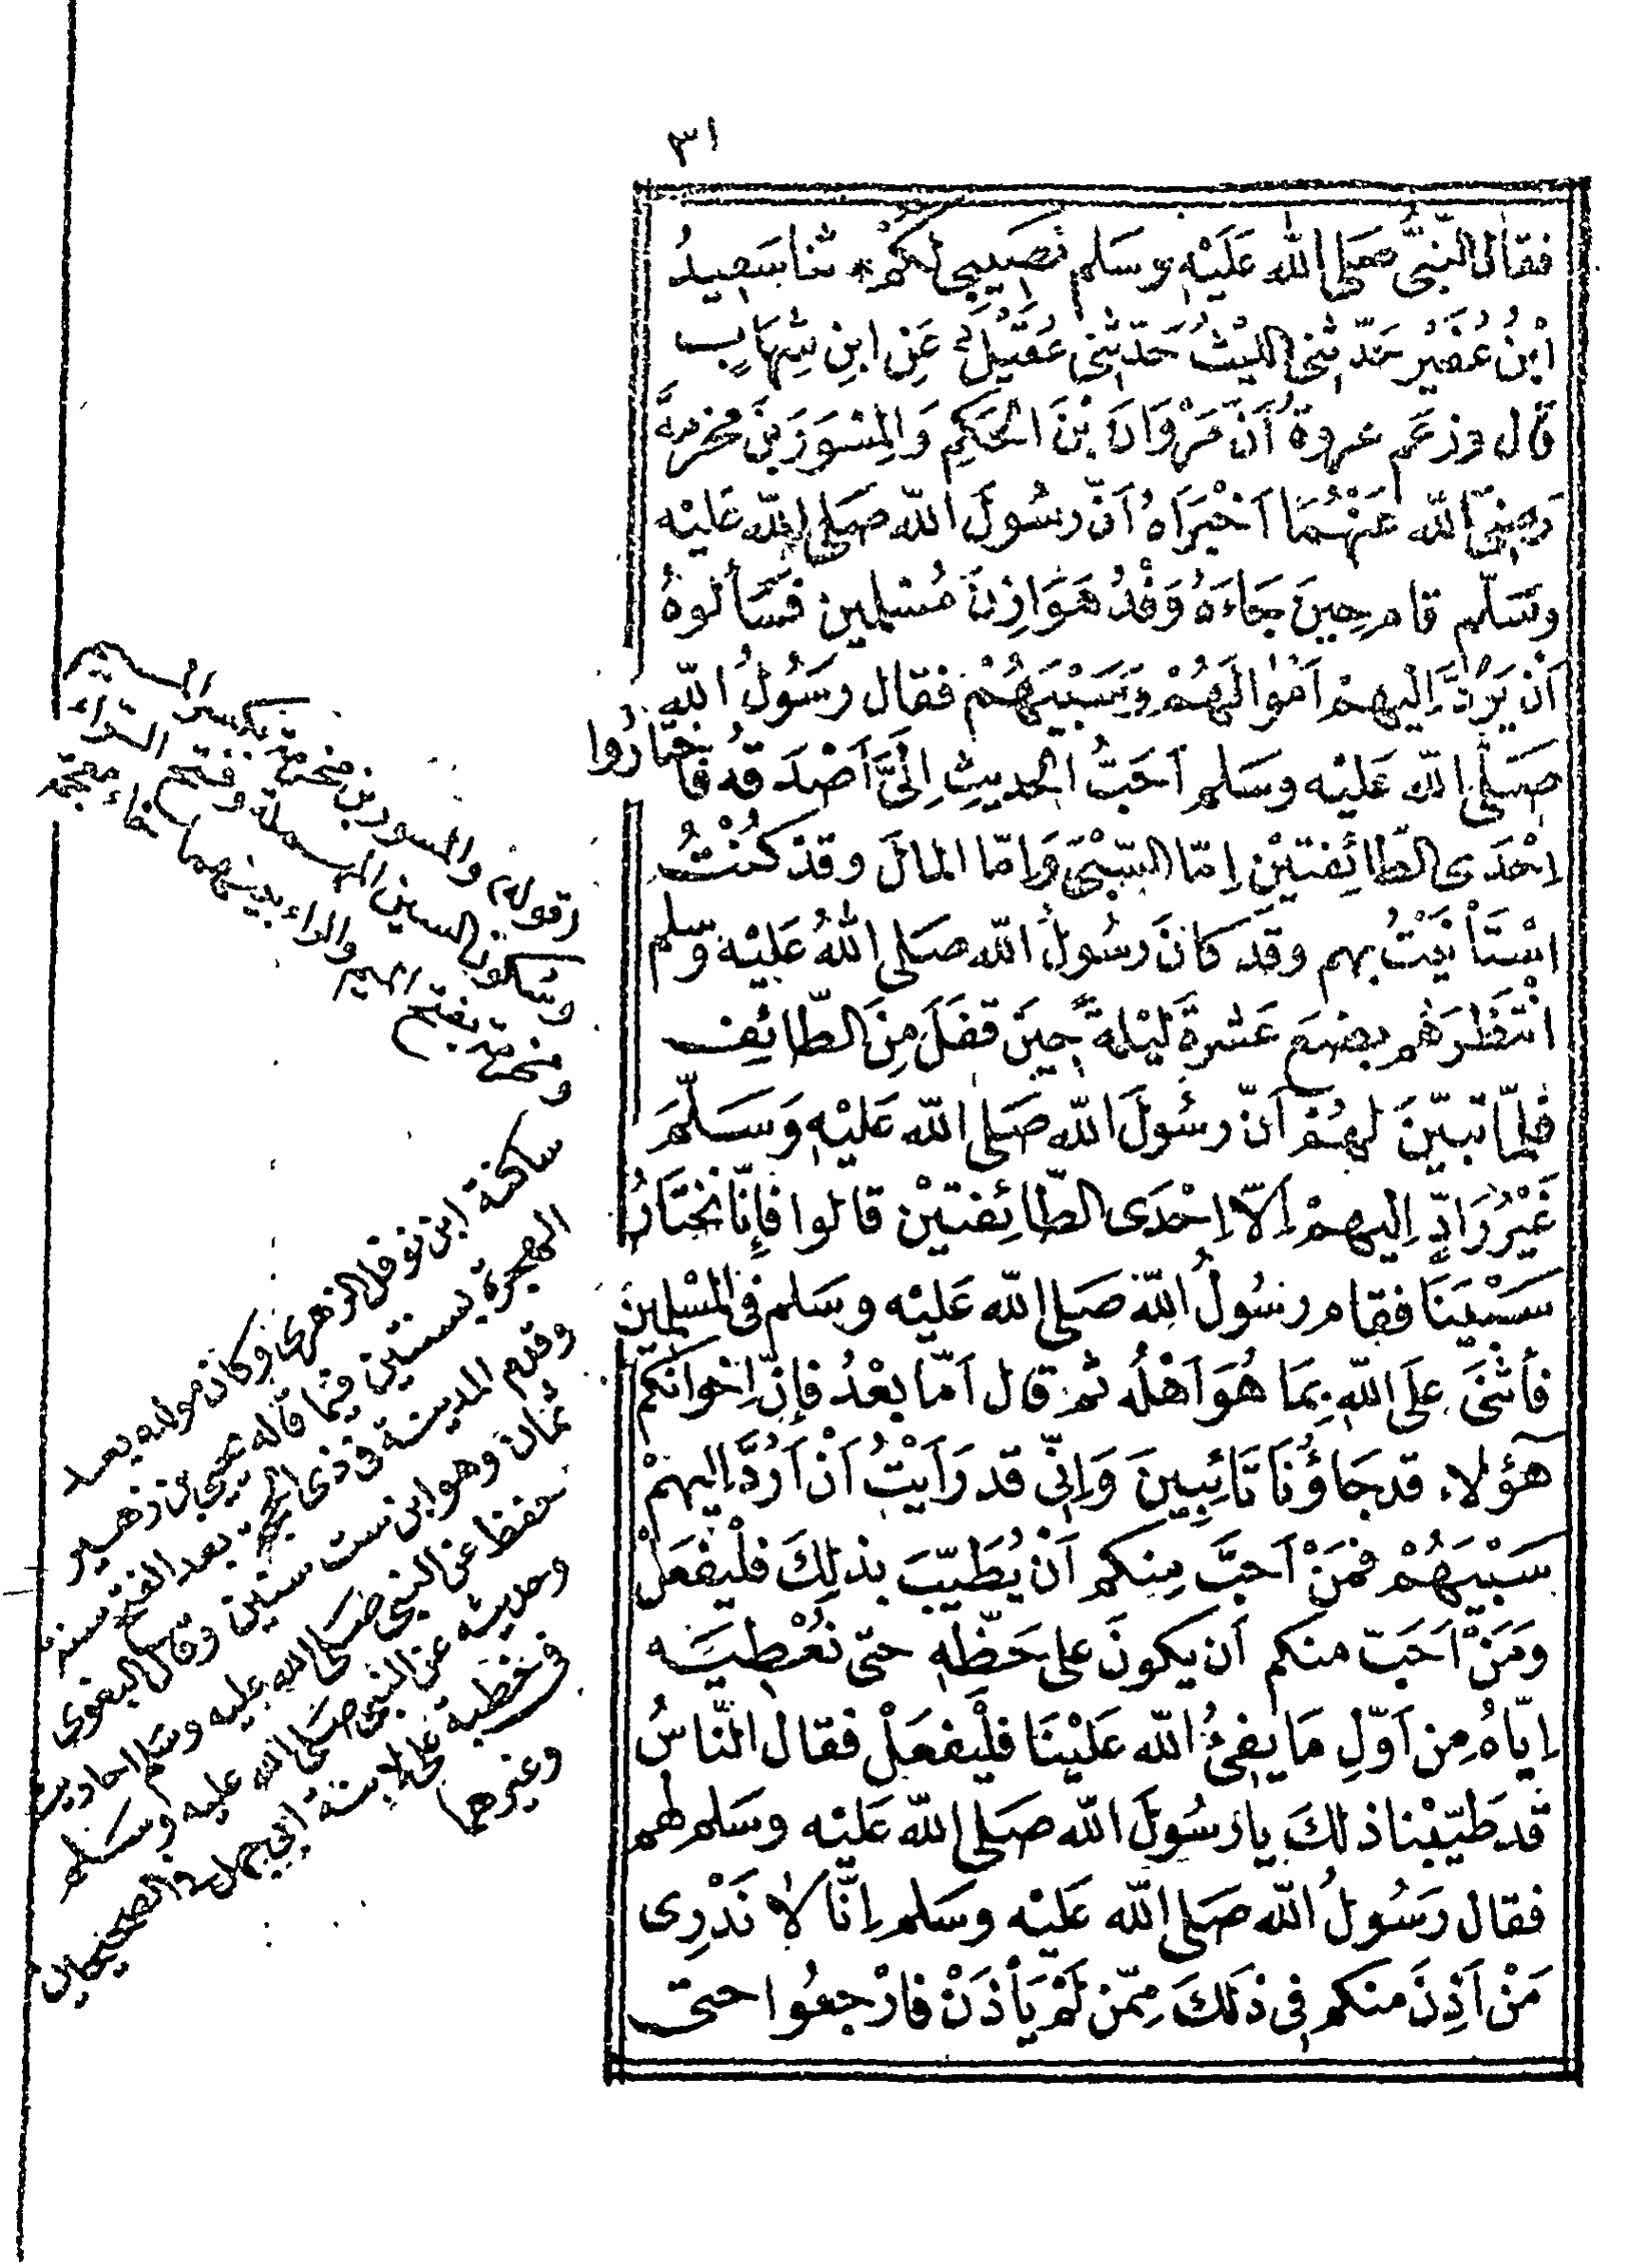 ٣١
فقال النَّبيُّ صَلى الله عَلَيْهِ وسَلم نَصِيبي لكمْ * ثنا سَعِيدُ
ابْنُ عُفَيْرٍ حَدّثني الليْثُ حَدّثني عُقَيْلٌ عَنِ ابنِ شِهَابٍ
قال وزعم عروةُ أنّ مَرْوَانَ بْنَ الحَكِم وَالمِسْوَرَ بنَ مخرمةَ
رَضِيَ الله عَنْهُمَا اَخْبَرَاهُ اَنّ رسُولَ الله صَلى الله عَليْه
وسَلّم قام حِينَ جَاءَهُ وَفْدُ هَوَازِنَ مُسْلمين فَسَألوهُ
اَنْ يَرُدَّ اِليهمْ اَمْوالَهُمْ وَسَبْيَهُمْ فقال رسَوُلُ اللّه
صَلّى الله عَليْه وسَلم اَحَبُّ الحديثِ اِلَيَّ اَصْدَقهُ فاختارُوا
اِحْدَى الطّائِفتيْن اِمّا السّبْيَ وَاِمّا المالَ وقدْ كنْتُ
اسْتَأنَيْتُ بهم وقَد كانَ رسُولُ الله صَلى اللهُ عَليْه وسلم
انْتَظَرَهم بضعَ عَشرةَ ليْلةً حِينَ قَفَلَ مِنَ الطّائِف
فلمّا تبيّنَ لهُمْ اَنّ رسُولَ الله صَلى الله عَليْهِ وَسَلّمَ
غَيْرُ رَادٍّ اِليهمْ اِلاّ اِحْدَى الطّائِفتيْن قالوا فإنّا نَختَارُ
سَبْيَنَا فقام رسُولُ الله صَلى الله عَليْه وسَلم في المسْلمِينَ
فأثنَى عَلَى اللهِ بِمَا هُوَ اَهْلُه ثم قال اَمّا بعْدُ فإنّ اِخوانكم
هؤلاء قد جَاؤُنَا تَائِبِينَ وَاِنّي قد رَاَيْتُ اَنْ اَرُدَّ اِليهمْ
سَبْيَهُمْ فمَنْ اَحبَّ مِنكم اَنْ يُطَيّبَ بذلِكَ فلْيفعَلْ
ومَنْ اَحَبّ منكم اَن يكونَ على حَظّهِ حتى نُعْطِيَه
اِيّاهُ مِن اَوّلِ مَا يفئُ الله عَليْنَا فلْيفعَلْ فقال النّاسُ
قَد طَيّبْنا ذلكَ يا رسُولَ الله صَلى الله عَليْه وسَلم لهم
فقال رسَوُلُ الله صَلى الله عَليْه وسَلم اِنّا لا نَدْرِى
مَنْ اَذِنَ منكم في ذلكَ مِمّن لَمْ يَأذَنْ فارْجعُوا حتى
(قوله والمسور بن مخرمة بكسر الميم
وسكون السين المهملة وفتح الواو
ومخرمة بفتح الميم والراء بينهما خاء معجمة
ساكنة ابن نوفل الزهرى وكان مولده بعد
الهجرة بسنتين فيما قاله يحيى بن
وقدم المدينة في ذى الحجة بعد الفتح سنة
ثمان وهو ابن ست سنين وقال البغوى
حفظ عن النبي صَلى الله عليه وسلم احاديث
وحديثه عن النبي صَلى الله عليه وسلم
في خطبة على لابنة ابي جهل في الصحيحين
وغيرهما